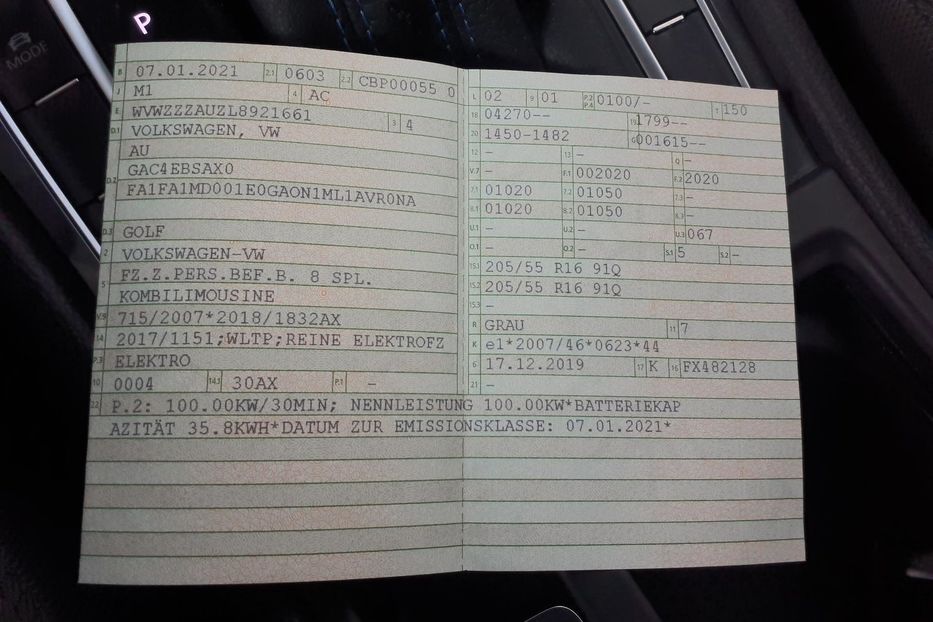 P
MODE
B 07.01.2021 2.1 0603 2.2 CBP00055 0
J M1 4 AC
E WVWZZZAUZL8921661 3 4
D.1 VOLKSWAGEN, VW
AU
D.2 GAC4EBSAX0
FA1FA1MD001E0GAON1ML1AVR0NA
D.3 GOLF
2 VOLKSWAGEN-VW
5 FZ.Z.PERS.BEF.B. 8 SPL.
KOMBILIMOUSINE
V.9 715/2007*2018/1832AX
14 2017/1151;WLTP;REINE ELEKTROFZ
P.3 ELEKTRO
10 0004 14.1 30AX P.1 -
L 02 9 01 P.2 P.4 0100/- T 150
18 04270-- 19 1799--
20 1450-1482 G 001615--
12 - 13 - Q -
V.7 - F.1 002020 F.2 2020
7.1 01020 7.2 01050 7.3 -
8.1 01020 8.2 01050 8.3 -
U.1 - U.2 - U.3 067
O.1 - O.2 - S.1 5 S.2 -
15.1 205/55 R16 91Q
15.2 205/55 R16 91Q
15.3 -
R GRAU 11 7
K e1*2007/46*0623*44
6 17.12.2019 17 K 16 FX482128
21 -
22 P.2: 100.00KW/30MIN; NENNLEISTUNG 100.00KW*BATTERIEKAP
AZITÄT 35.8KWH*DATUM ZUR EMISSIONSKLASSE: 07.01.2021*